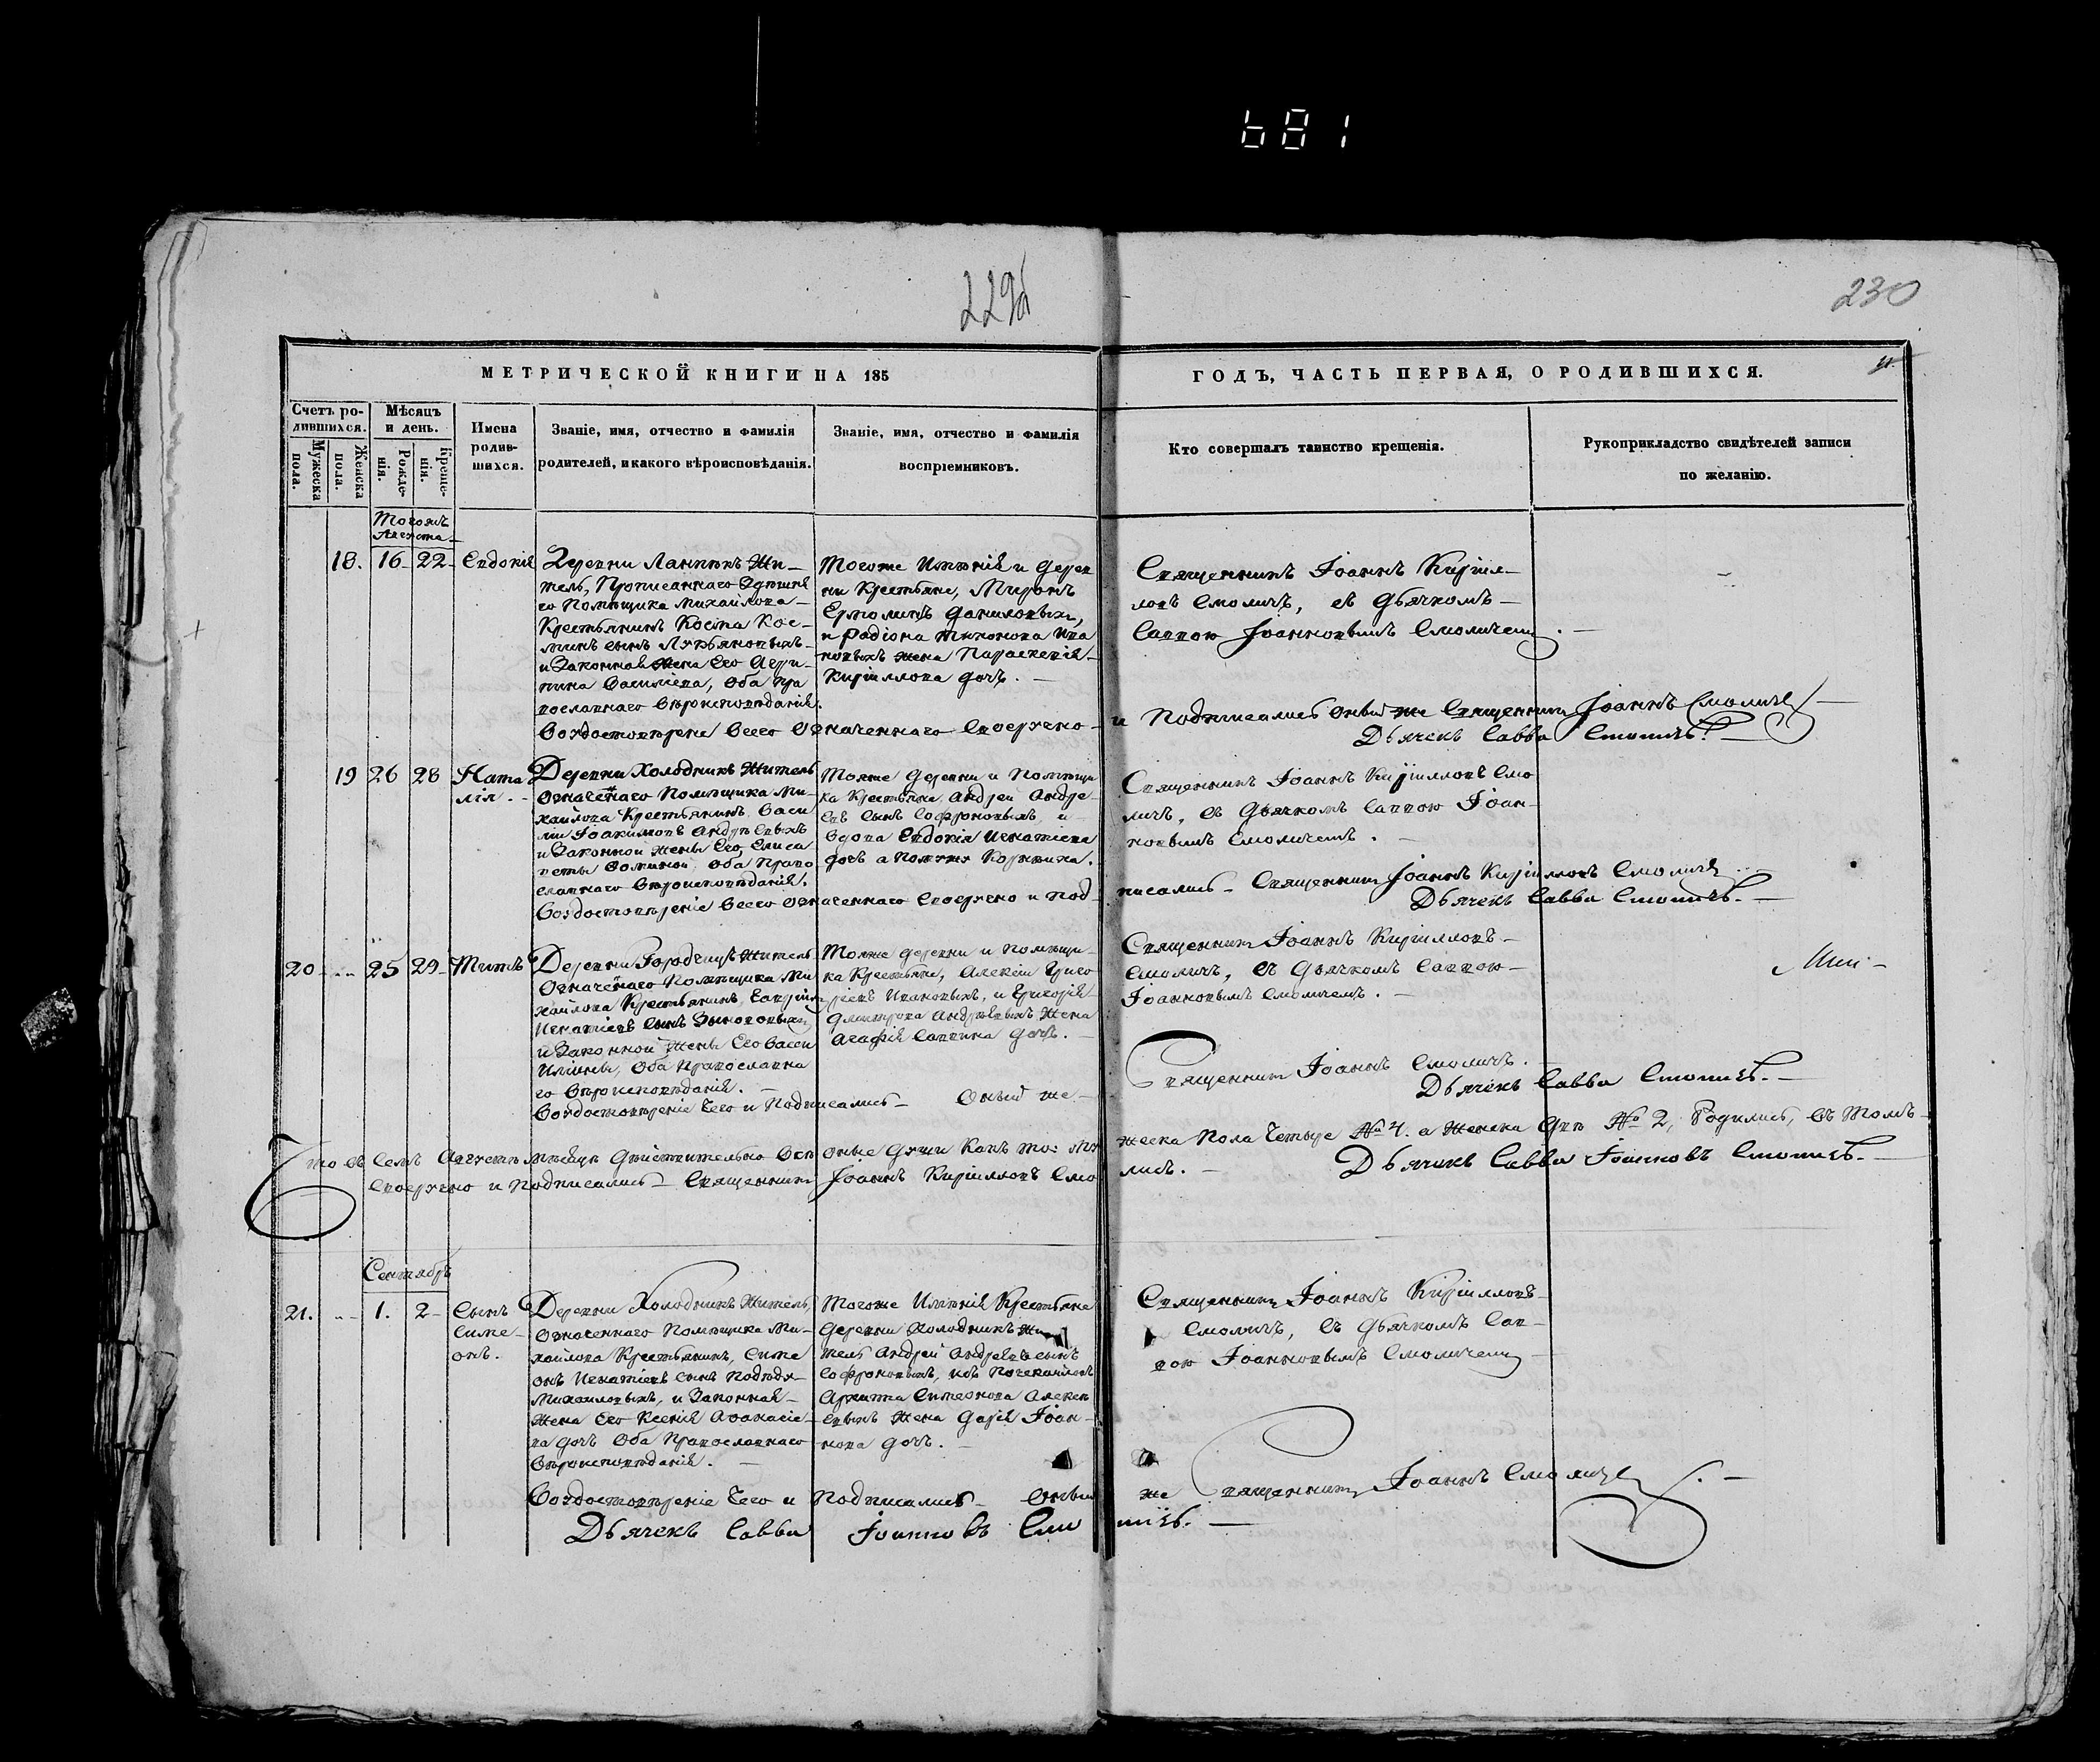 681
229
230
МЕТРИЧЕСКОЙ КНИГИ НА 185
ГОДЪ, ЧАСТЬ ПЕРВАЯ, О РОДИВШИХСЯ.
Счетъ ро-
дившихся.
Мужеска
пола.
Женска
пола.
Мѣсяцъ
и день.
Рожде-
нія.
Креще-
нія.
Имена
родив-
шихся.
Званіе, имя, отчество и фамилія
родителей, и какого вѣроисповѣданія.
Званіе, имя, отчество и фамилія
воспріемниковъ.
Кто совершалъ таинство крещенія.
Рукоприкладство свидѣтелей записи
по желанію.
Августа
18. 16 22 Евдокія
Деревни Жи-
тель, Прописаннаго
го Помѣщика Михайлова
Крестьянинъ Косма Кос-
минъ сынъ Лукьяновыхъ
и Законная Жена Его Агри-
пина Василіева, Оба Пра
вославнаго Вѣроисповѣданія.
Тогоже Имѣнія и Дерев
ни Крестьяне, Миронъ
Даниловыхъ,
и Родіона Тихонова Ива
новыхъ жена Параскевія
Кириллова дочь.
Священникъ Іоаннъ Кирил-
ловъ Смоличъ, съ Дьячкомъ
Саввою Іоанновымъ Смоличемъ.
Воудостовѣреніе Всего Означеннаго Своеручно
и Подписались Оный же Священникъ Іоаннъ Смоличъ
Дьячекъ Савва Смоличъ.
19 26 28 Ната
лія.
Деревни Холодникъ Житель
Означеннаго Помѣщика Ми-
хайлова Крестьянинъ Васи
лій Іоакимовъ
и Законной Жены Его Елиса
веты Фоминой Оба Право
славнаго Вѣроисповѣданія.
Тояже Деревни и Помѣщи
ка Крестьяне Андрей Андре-
евъ Сынъ Софроновыхъ, и
Вдова Евдокія Игнатіева
дочь
Священникъ Іоаннъ Кирилловъ Смо
личъ, съ Дьячкомъ Саввою Іоан-
новымъ Смоличемъ.
Воудостовѣреніе Всего Означеннаго Своеручно и Под-
писались Священникъ Іоаннъ Кирилловъ Смоличъ
Дьячекъ Савва Смоличъ.
20 25 29 Титъ
Деревни Городчицъ Житель
Означеннаго Помѣщика Ми
хайлова Крестьянинъ,
Игнатіевъ Сынъ
и Законной Жены Его Васси
Ильины, Оба Православна
го Вѣроисповѣданія.
Тояже Деревни и Помѣщи-
ка Крестьяне, Алексій Григо
ріевъ Ивановыхъ, и Григорія
Дмитрова Андреевыхъ Жена
Агафія Саввина дочь.
Священникъ Іоаннъ Кирилловъ
Смоличъ, съ Дьячкомъ Саввою
Іоанновымъ Смоличемъ.
Воудостовѣреніе Чего и Подписались Оный же
Священникъ Іоаннъ Смоличъ.
Дьячекъ Савва Смоличъ.
Что въ Семъ Августѣ Мѣсяцѣ Дѣйствительно Всѣ оные Души Какъ то: Му
жеска Пола Четыре № 4. а Женска Двѣ № 2, Родились, въ Томъ
Своеручно и Подписались Священникъ Іоаннъ Кирилловъ Смо
личъ.
Дьячекъ Савва Іоанновъ Смоличъ.
Сентябрь
21. 1. 2 Сынъ
Симе-
онъ.
Деревни Холодникъ Житель,
Означеннаго Помѣщика Ми-
хайлова Крестьянинъ, Симе
онъ Игнатіевъ сынъ
Михайловыхъ, и Законная
Жена Его Ксенія Афанасіе-
ва дочь Оба Православнаго
Вѣроисповѣданія.
Тогоже Имѣнія Крестьяне
Деревни Холодникъ Жи
тель Андрей Андреевъ сынъ
Софроновыхъ,
Архипа Симеонова Алексе
евыхъ Жена Дарія Іоан-
нова дочь.
Священникъ Іоаннъ Кирилловъ
Смоличъ, съ Дьячкомъ Сав-
вою Іоанновымъ Смоличемъ
Воудостовѣреніе Чего и Подписались Оный
же Священникъ Іоаннъ Смоличъ
Дьячекъ Савва Іоанновъ Смо
личъ.